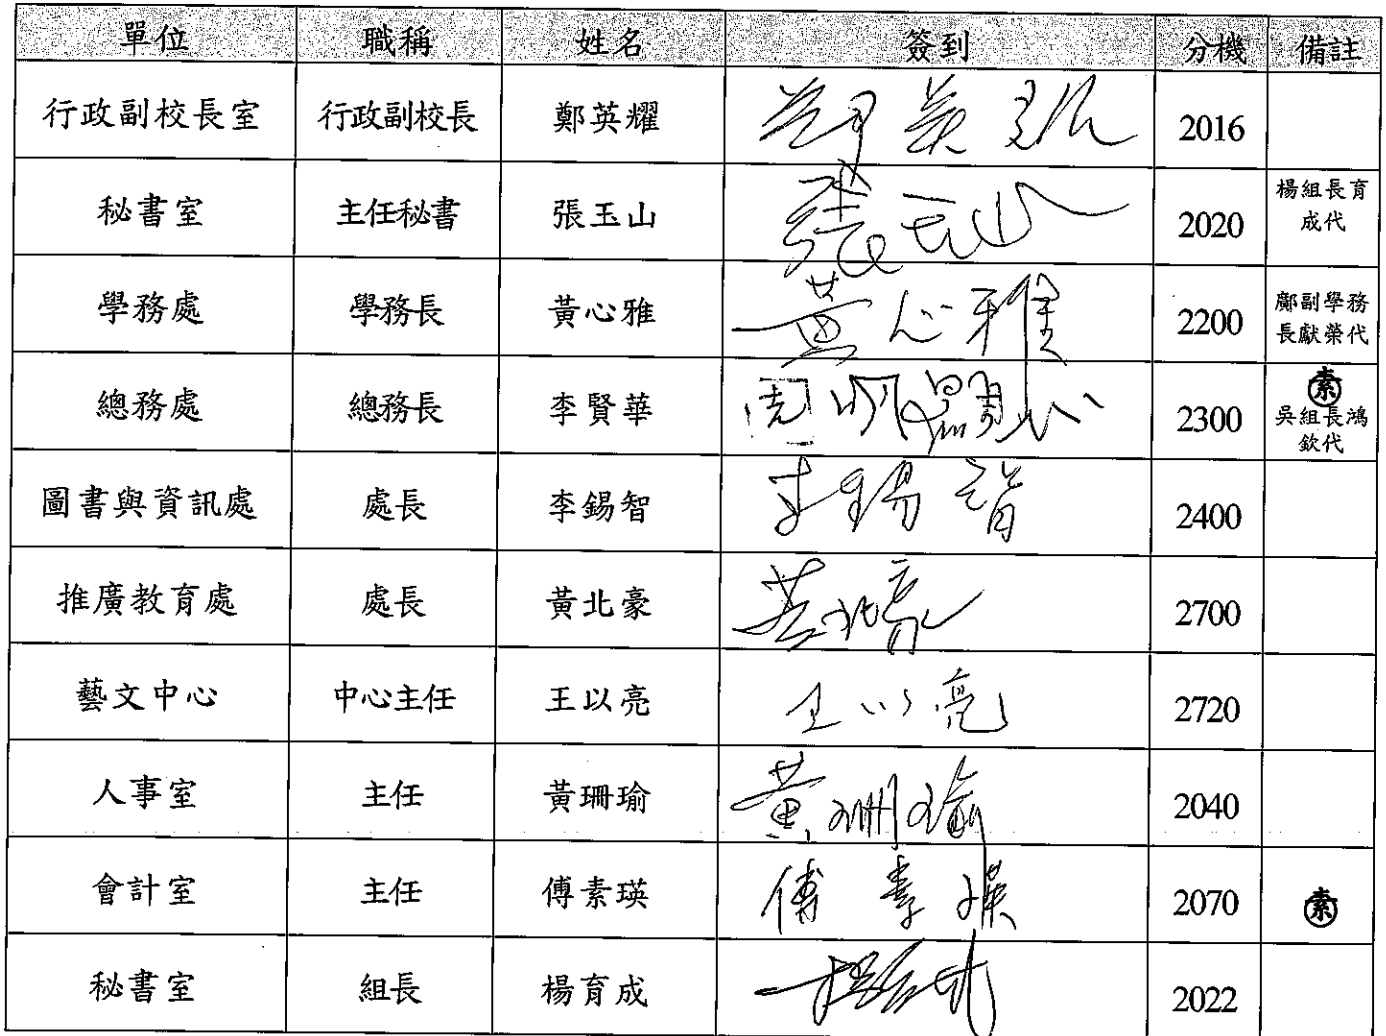 單位 職稱 姓名 簽到 分機 備註
行政副校長室 行政副校長 鄭英耀 鄭英耀 2016
秘書室 主任秘書 張玉山 張玉山 2020 楊組長育
成代
學務處 學務長 黃心雅 黃心雅 2200 鄺副學務
長獻榮代
總務處 總務長 李賢華 周明顯 2300 素
吳組長鴻
欽代
圖書與資訊處 處長 李錫智 李錫智 2400
推廣教育處 處長 黃北豪 黃北豪 2700
藝文中心 中心主任 王以亮 王以亮 2720
人事室 主任 黃珊瑜 黃珊瑜 2040
會計室 主任 傅素瑛 傅素瑛 2070 素
秘書室 組長 楊育成 楊育成 2022